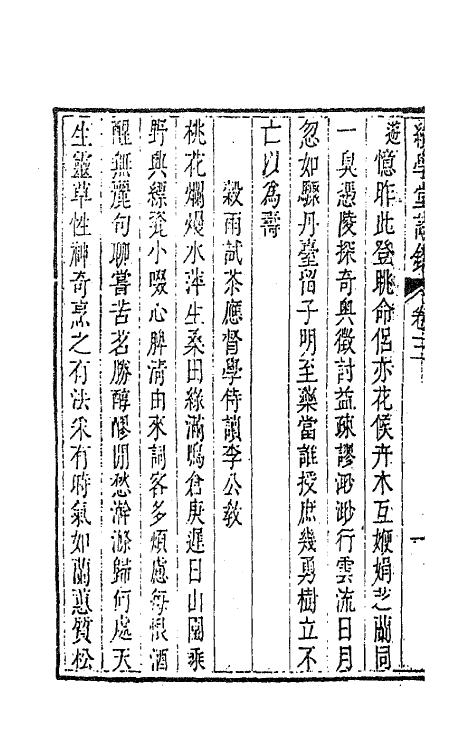 遊憶昨此登眺命侶亦花候卉木互嬋娟芝蘭同
一臭憑陵探奇輿徵討益疎謬渺渺行雲流日月
忽如驟丹臺留子明至藥當誰授庶幾勇樹立不
亡以為壽
穀雨試茶應督學侍讀李公教
桃花爛熳水萍生桑田綠滿鳴倉庚遲日山園乘
野興縹甆小啜心脾清由來詞客多煩慮每恨酒
醒無麗句聊嘗苦茗勝醇醪閒愁澣滌歸何處天
生靈草性神奇烹之有法采有時氣如蘭蕙質松
學堂詩 卷三
一